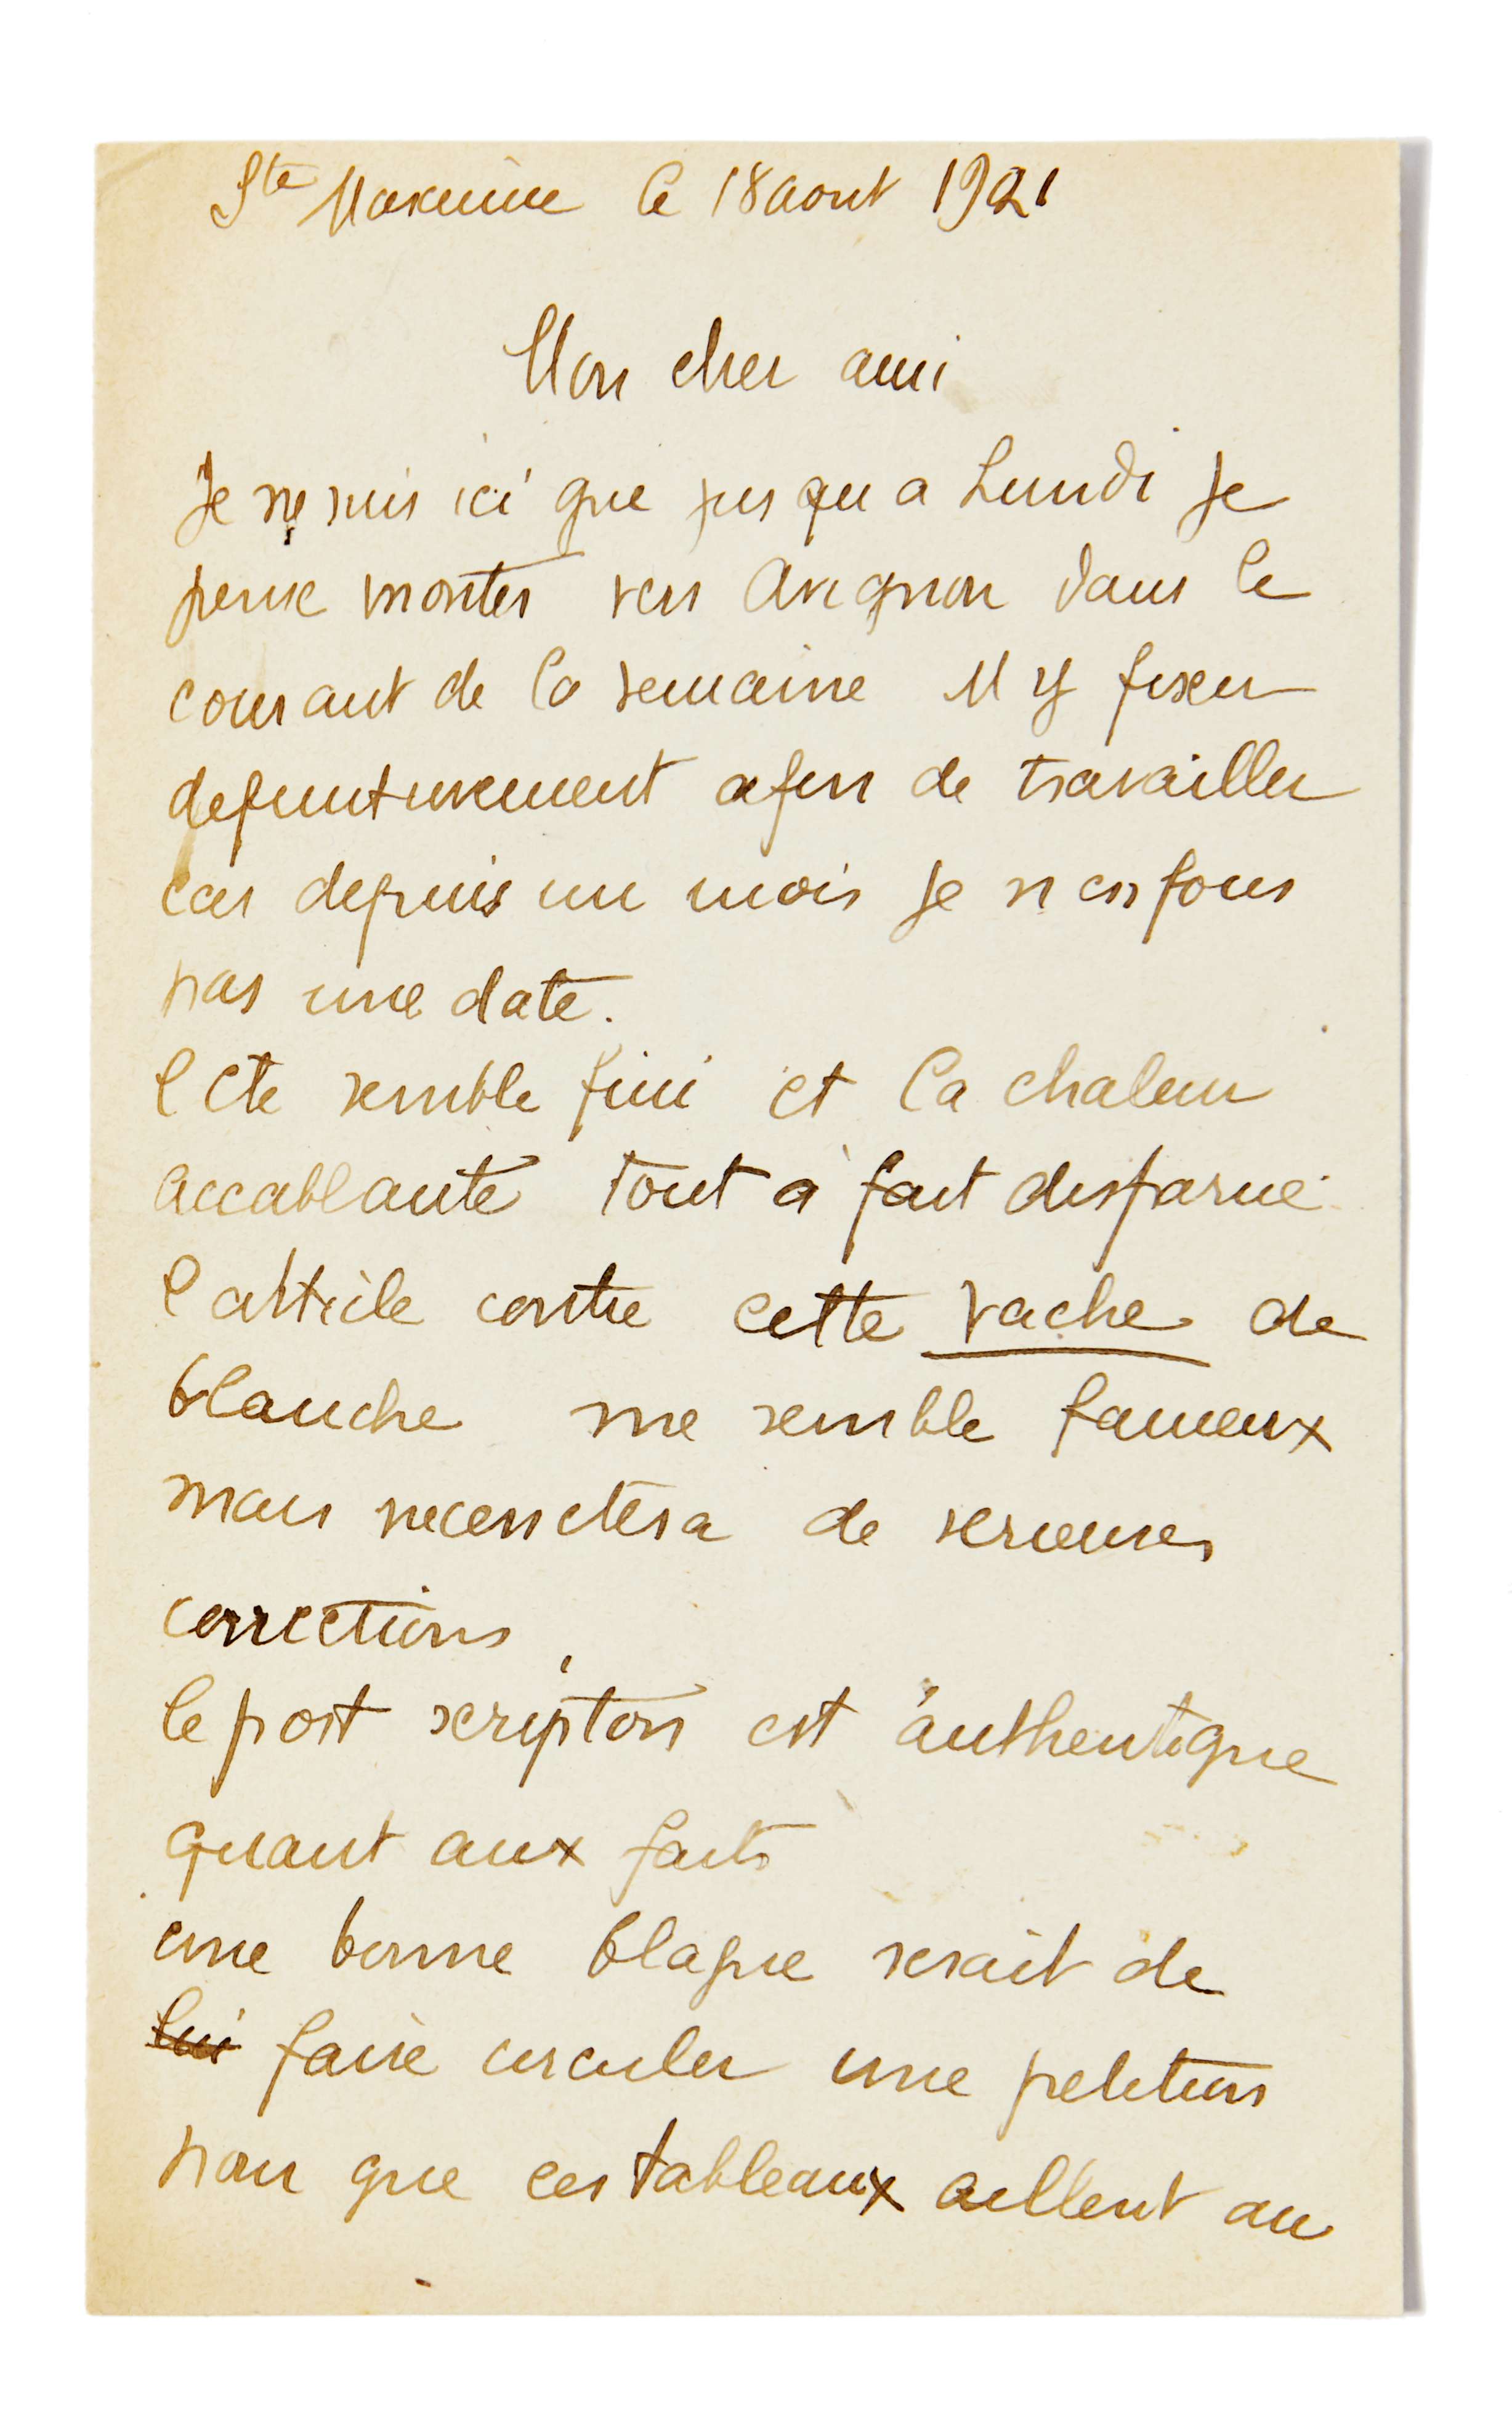 Ste Maxime le 18 aout 1921
Mon cher ami
Je ne suis ici que jusqu a Lundi je
pense monter vers Avignon dans le
courant de la semaine M y fixer
definitivement afin de travailler
car depuis un mois je n en fous
pas une date.
l Eté semble fini et la chaleur
accablante tout à fait disparue.
l article contre cette vache de
blanche me semble fameux
mais necessitera de serieuses
corrections
le post scripton est authentique
quant aux faits
une bonne blague serait de
lui faire circuler une petition
pour que ces tableaux aillent au